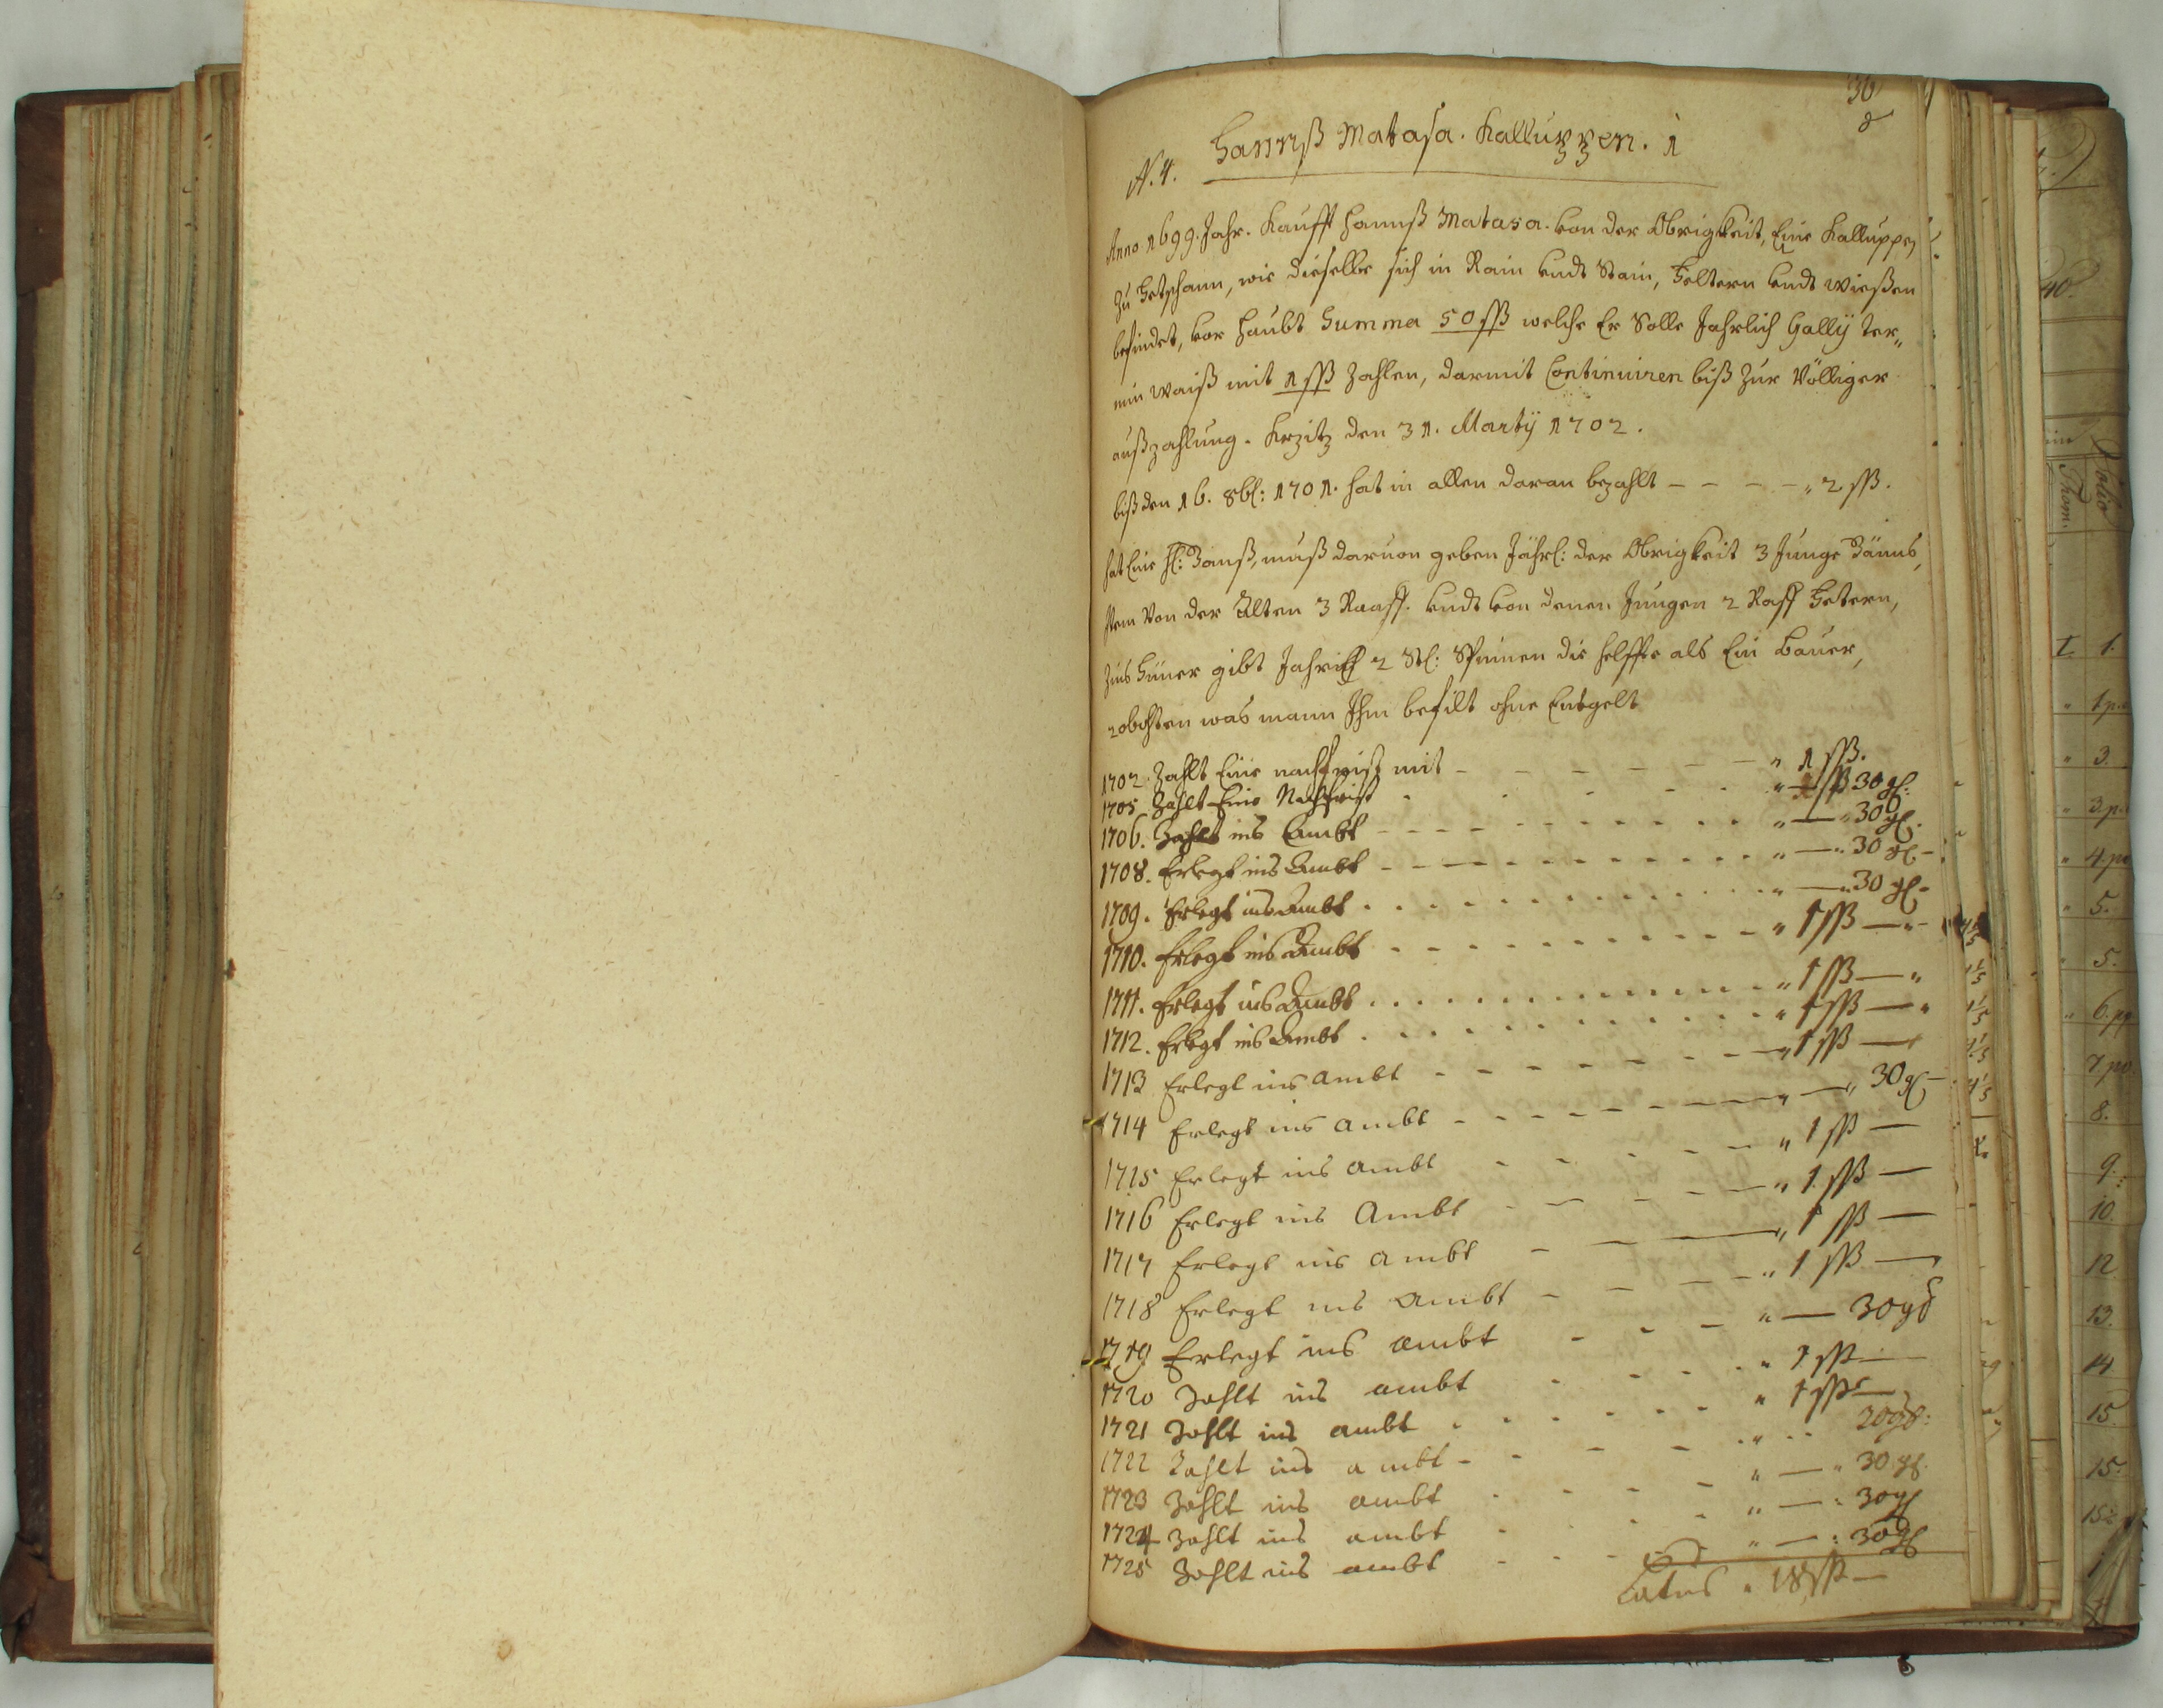 30
N. 4. Hannß Matasa. Kalluppen. 1
Anno 1699. Jahr. Kaufft Hannß Matasa. von der Obrigkeit, Eine Kalluppen,
zu Hetschann, wie dieselbe sich in Rain undt Stain, Feltern undt Wießen
befindet, vor Haubt Summa 50 ßß welche Er Solle Jahrlich Gallÿ ter„
min Waiß mit 1 ßß Zahlen, darmit Continuiren biß Zur Völliger
außzahlung. Krzitz den 31. Martÿ 1702.
biß den 16. 8b: 1701. hat in allen daran bezahlt - - - - „ 2 ßß.
hat Eine hl: Ganß, muß daruon geben Jährl: der Obrigkeit 3 Junge Gänns,
Item Von der Alten 3 Raaff. undt von denen Jungen 2 Raff Federn,
Zins Hüner gibt Jahrich 2 St: Spinnen die helffte als Ein Bauer,
robothen was mann Ihm befilt ohne Entgelt
1702. Zahlt Eine nachfrist mit - - - - - - „ 1 ßß.
1705. Zahlt Eine Nachfrist . . . . . „ — ß 30 gl:
1706. Zahlt ins Ambt - - - - - - „ — „ 30 gl.
1708. Erlegt ins Ambt - - - - - - „ — „ 30 gl. -
1709. Erlegt ins Ambt . . . . . . „ — „ 30 gl. -
1710. Erlegt ins Ambt - - - - - - „ 1 ßß — „ -
1711. Erlegt ins Ambt . . . . . . „ 1 ßß — „
1712. Erlegt ins Ambt . . . . . . „ 1 ßß — „
1713 Erlegt ins ambt - - - - - - „ 1 ßß —
1714 Erlegt ins ambt - - - - - - „ — „ 30 gl -
1715 Erlegt ins ambt - - - - - „ 1 ßß —
1716 Erlegt ins Ambt - - - - - „ 1 ßß —
1717 Erlegt ins ambt - — — „ 1 ßß —
1718 Erlegt ins Ambt - - - - „ 1 ßß —
1719 Erlegt ins ambt - - - „ — 30 gl
1720 Zahlt ins ambt . . . . . „ 1 ßß —
1721 Zahlt ins ambt . . . . . . „ 1 ßß —
1722 Zahlt ins ambt - - - - - „ . . 20 gl:
1723 Zahlt ins ambt . . . - „ — „ 30 gl.
1724 Zahlt ins ambt . . . . „ — : 30 gl
1725 Zahlt ins ambt - - - - „ — : 30 gl
Latus „ 18 ßß —